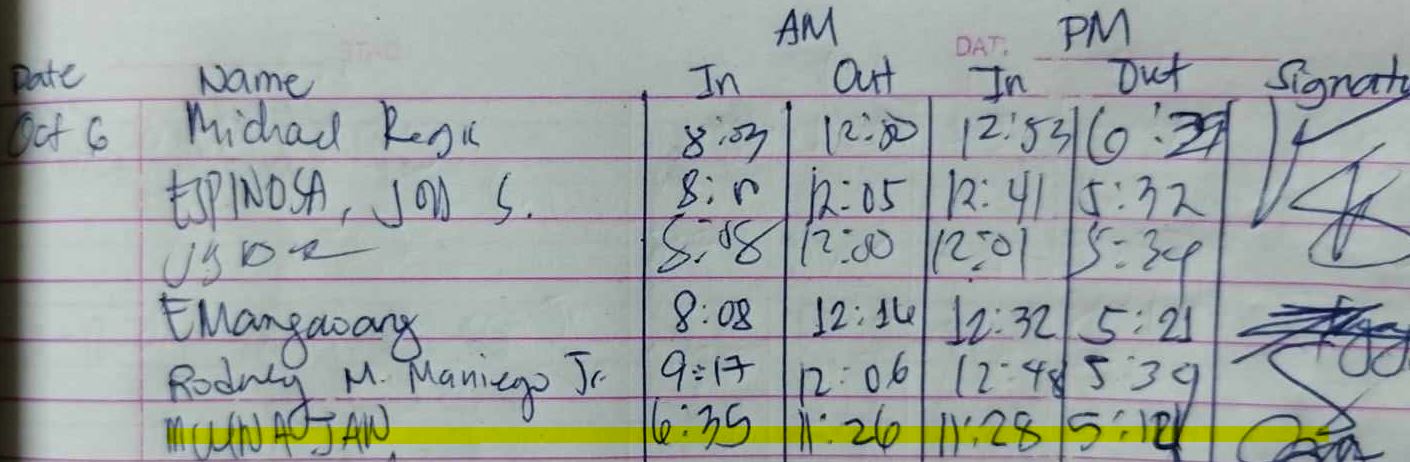 AM DAT. PM
Date Name In Out In Out Signatu
Oct 6 Michael 8:03 12:00 12:53 6:
ESPINOSA, JON S. 12:05 12:41 5:32
8:08 12:00 12:01 5:34
EMangaoang 8:08 12:16 12:32 5:21
Rodney M. Maniego Jr. 9:17 12:06 12:48 5:39
6:35 11:26 11:28 5:12